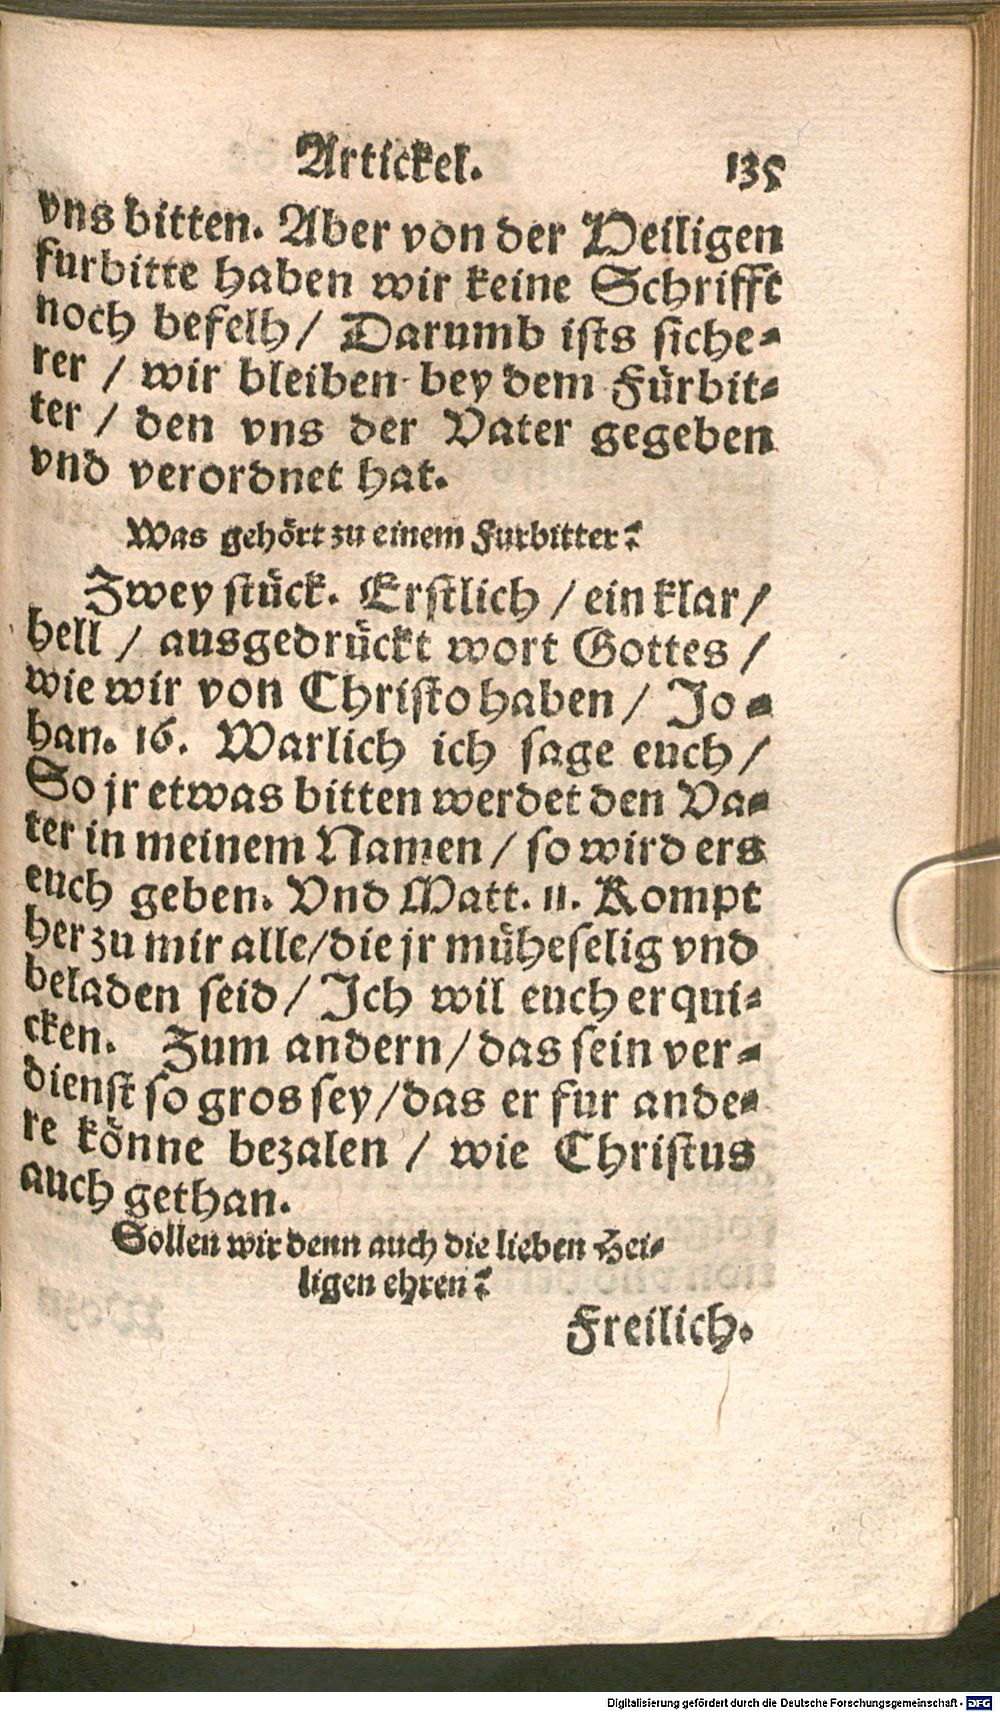 Artickel. 135
vns bitten. Aber von der Heiligen
furbitte haben wir keine Schrifft
noch befelh / Darumb ists siche-
rer / wir bleiben bey dem Fürbit-
ter / den vns der Vater gegeben
vnd verordnet hat.
Was gehört zu einem Furbitter?
Zwey stück. Erstlich / ein klar /
hell / ausgedrückt wort Gottes /
wie wir von Christo haben / Jo-
han. 16. Warlich ich sage euch /
So jr etwas bitten werdet den Va-
ter in meinem Namen / so wird ers
euch geben. Vnd Matt. 11. Kompt
her zu mir alle / die jr müheselig vnd
beladen seid / Ich wil euch erqui-
cken. Zum andern / das sein ver-
dienst so gros sey / das er fur ande-
re könne bezalen / wie Christus
auch gethan.
Sollen wir denn auch die lieben Hei-
ligen ehren?
Freilich.
Digitalisierung gefördert durch die Deutsche Forschungsgemeinschaft - DFG